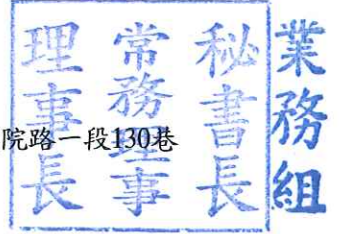 業務組
秘書長
常務理事
理事長
院路一段130巷